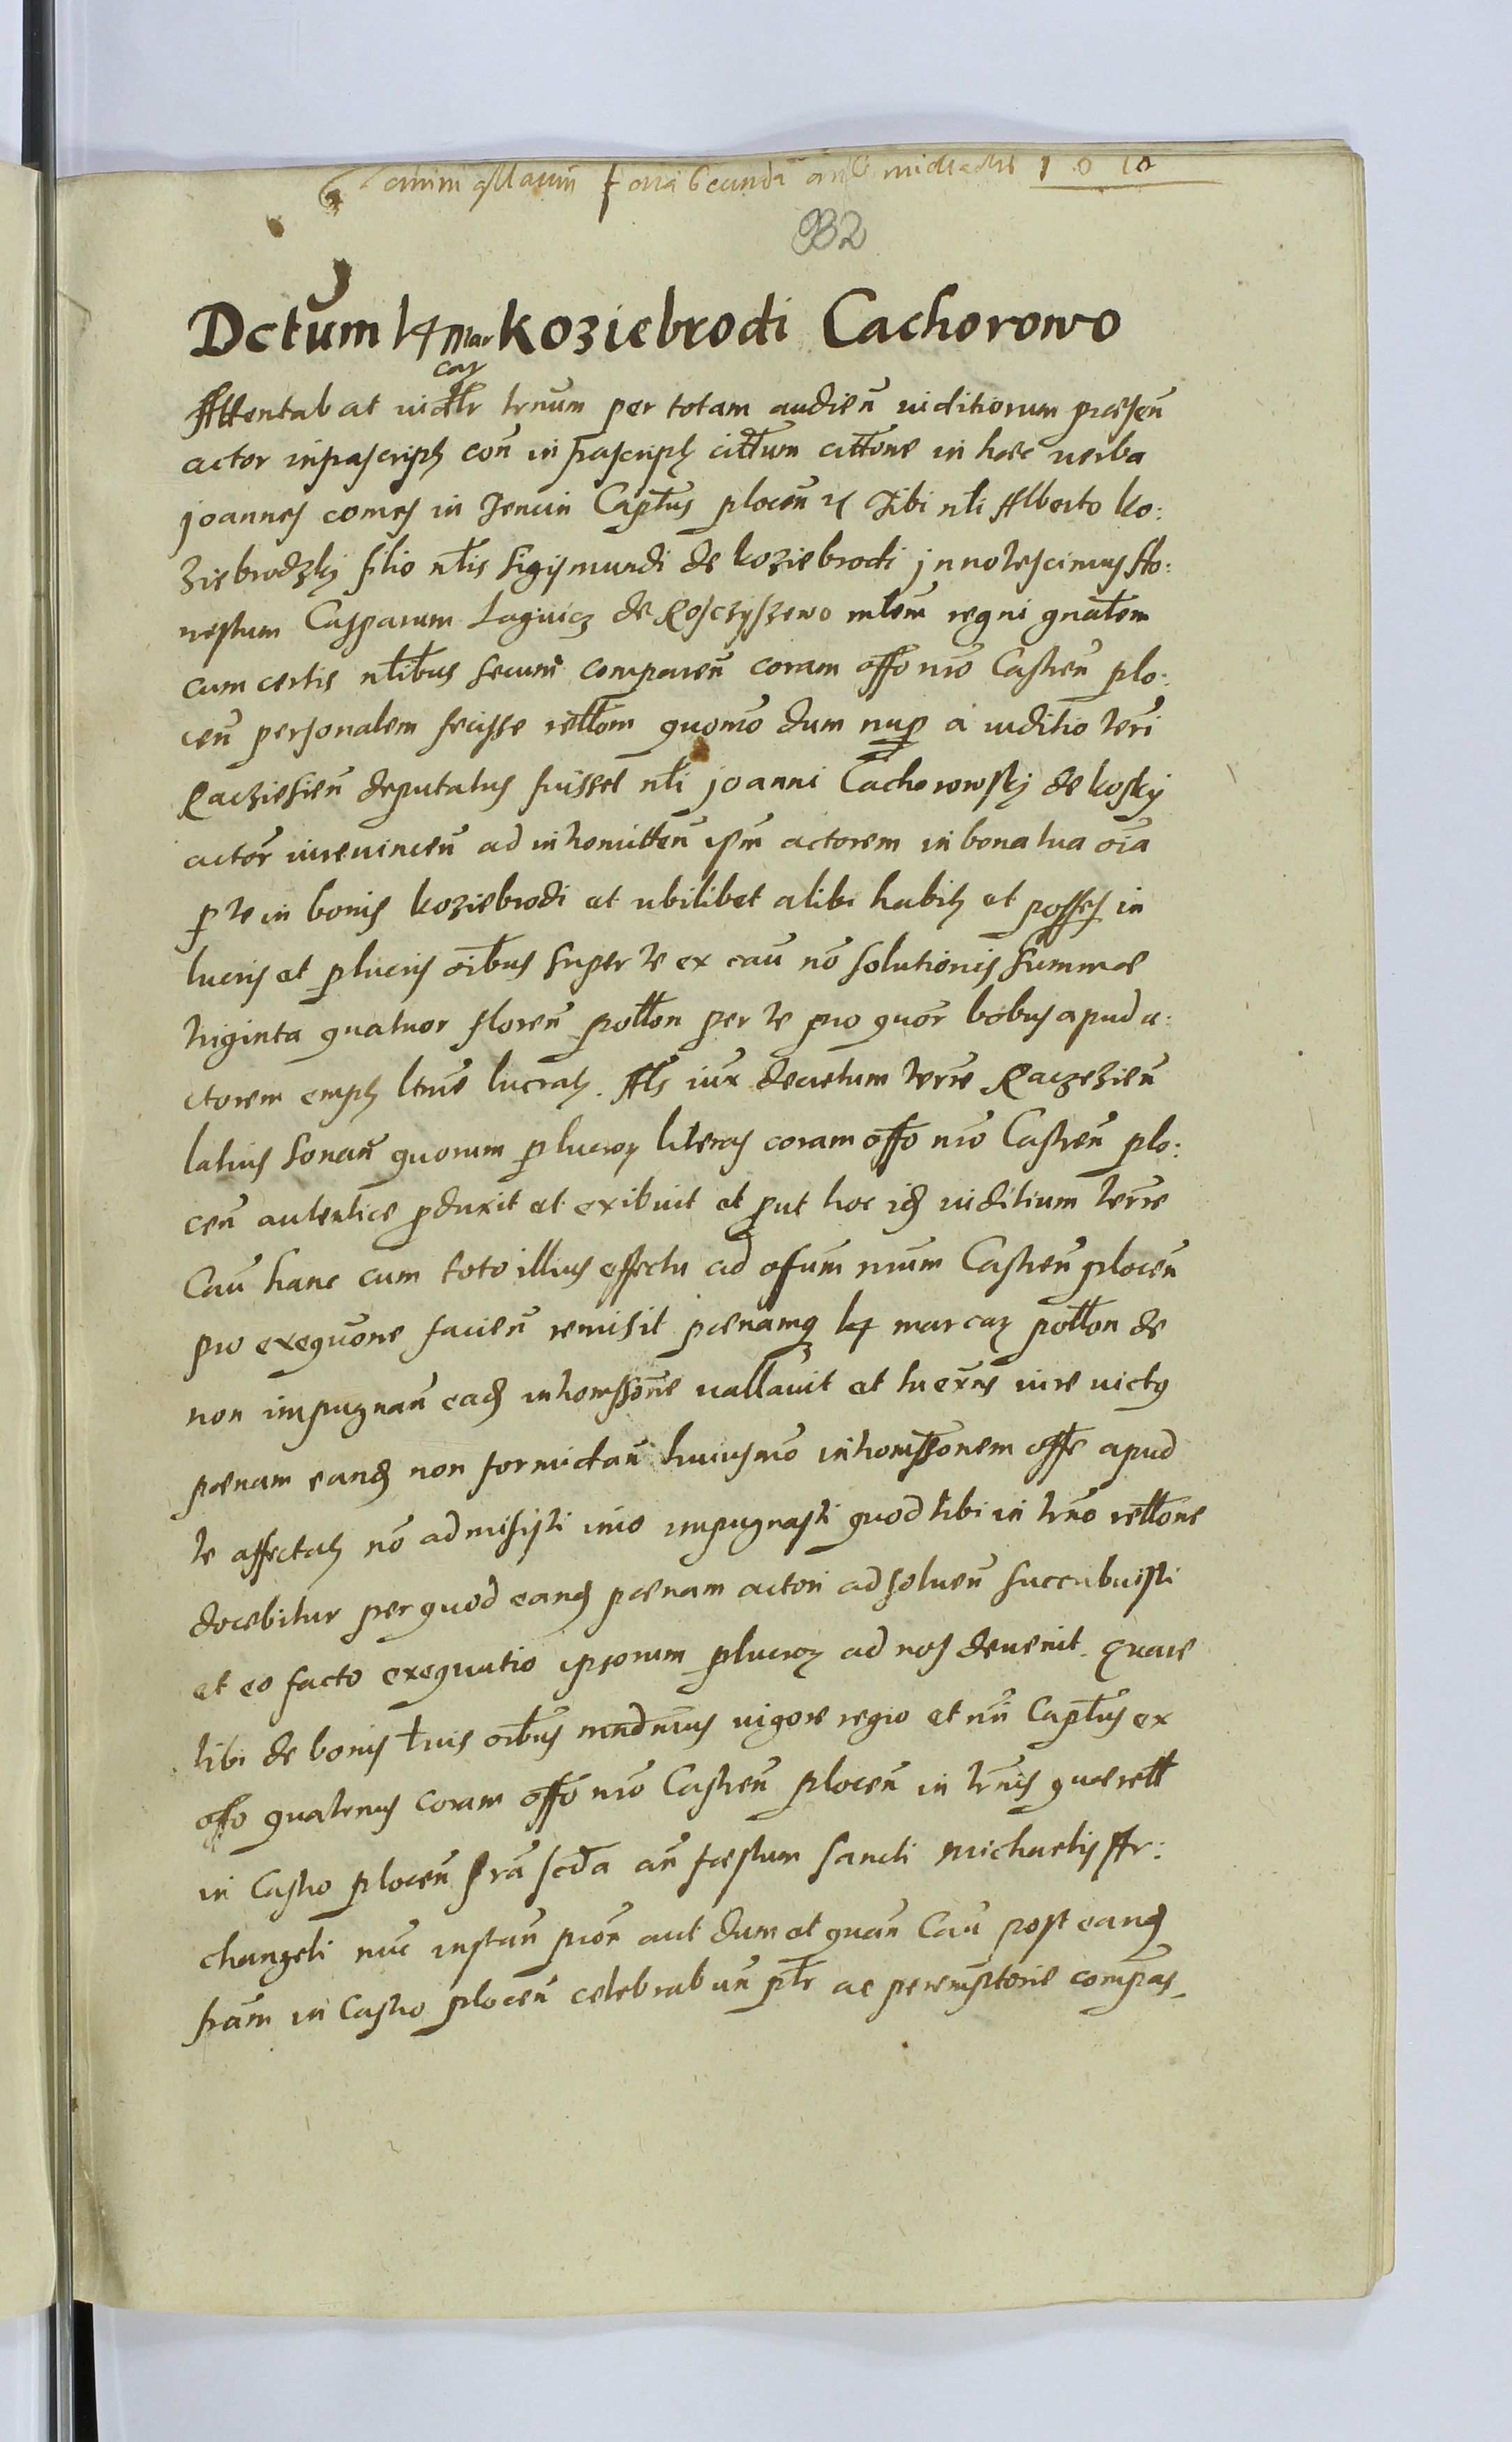 feria secunda
932
Dctum 14 marcaz koziebrodi Cachorowo
Attentabat uidtr trnum per totam audien uiditiorum præsen
actor infrascrip con infrascrip cittum cittone in hæc uerba
joannes comes in Tencin Captus plocen Tibi nli Alberto ko:
ziebrodzky filio nlis Sigismundi de koziebrodi jnnotescimus Ho:
nestum Casparum Laguicz de Rosczyszewo mlem regni gnalem
cum certis nlibus secum comparen coram offo nro Castren plo:
cen personalem fecisse rellom quomo dum nup a iuditio terri
Racziesien deputatus fuisset nli joanni Cachorowsky de kosky
actor iureuincen ad intromitten ipm actorem in bona tua oia
p te in bonis koziebrodi et ubilibet alibi habit et posses in
lucris et plucris oibus super te ex cau no solutionis summæ
triginta quatuor floren pollon per te pro quor bobus apud a:
ctorem empt ltme lucrat. Als iux decretum terre Raczezien
latius sonan quorum plucror literas coram offo nro Castren plo:
cen autentice pduxit et exibuit et put hoc id iuditium terre
Cau hanc cum toto illius effectu ad ofum nrum Castren plocen
pro exequone facien remisit pænamq 14 marcaz pollon de
non impugnan ead intromssone uallauit et tu exns iure victg
pænam eand non formidan huiusmo intromssonem offe apud
te affectat no admisisti imo impugnasti quod tibi in trno rellone
docebitur per quod eand pænam actori ad soluen succubuisti
et eo facto exequutio ipsorum plucror ad nos deuenit. Quare
tibi de bonis tuis oibus mndmus uigore regio et nri Captus ex
offo quatenus coram offo nro Castren plocen in trnis querell
in Castro plocen fra scda an festum sancti Michaelis Ar:
changeli nuc instan prox aut dum et quan Cau post eand
fram in Castro plocen celebrabun ptr ac peremptorie compas